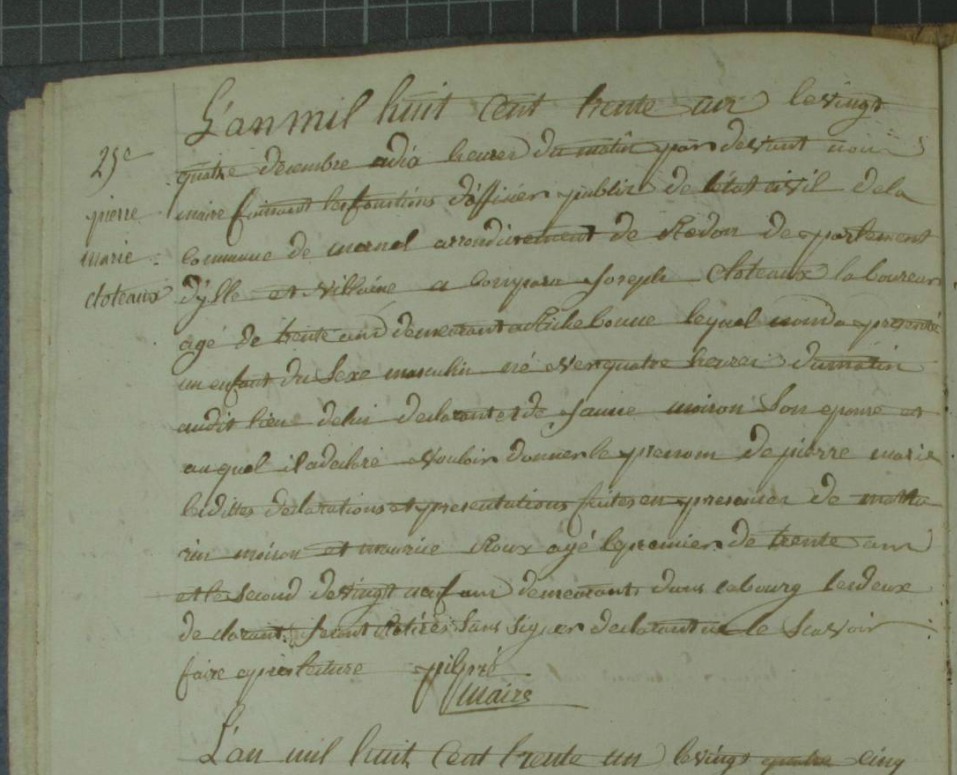 L'an mil huit cent trente un le vingt
25e
quatre decembre a dix heures du matin par devant nous
pierre
marie
cloteaux
maire faisant les fonctions d'officier public de l'état civil de la
commune de arrondissement de Redon departement
d'ylle et villaine a comparu Joseph Cloteaux laboureur
agé de trente ans demeurant a lequel nous a presenté
un enfant du sexe masculin né vers quatre heures du matin
audit lieu de lui declarant et de Jeanne moison son epouse et
auquel il a declaré vouloir donner le prenom de pierre marie
lesdittes declarations et presentations faites en presence de mathu
rin moison et maurice Roux agé le premier de trente ans
et le second de vingt neuf ans demeurants dans ce bourg les deux
declarant se sont retirés sans signer declarant ne le scavoir
faire apres lecture
maire
L'an mil huit cent trente un le vingt quatre cinq